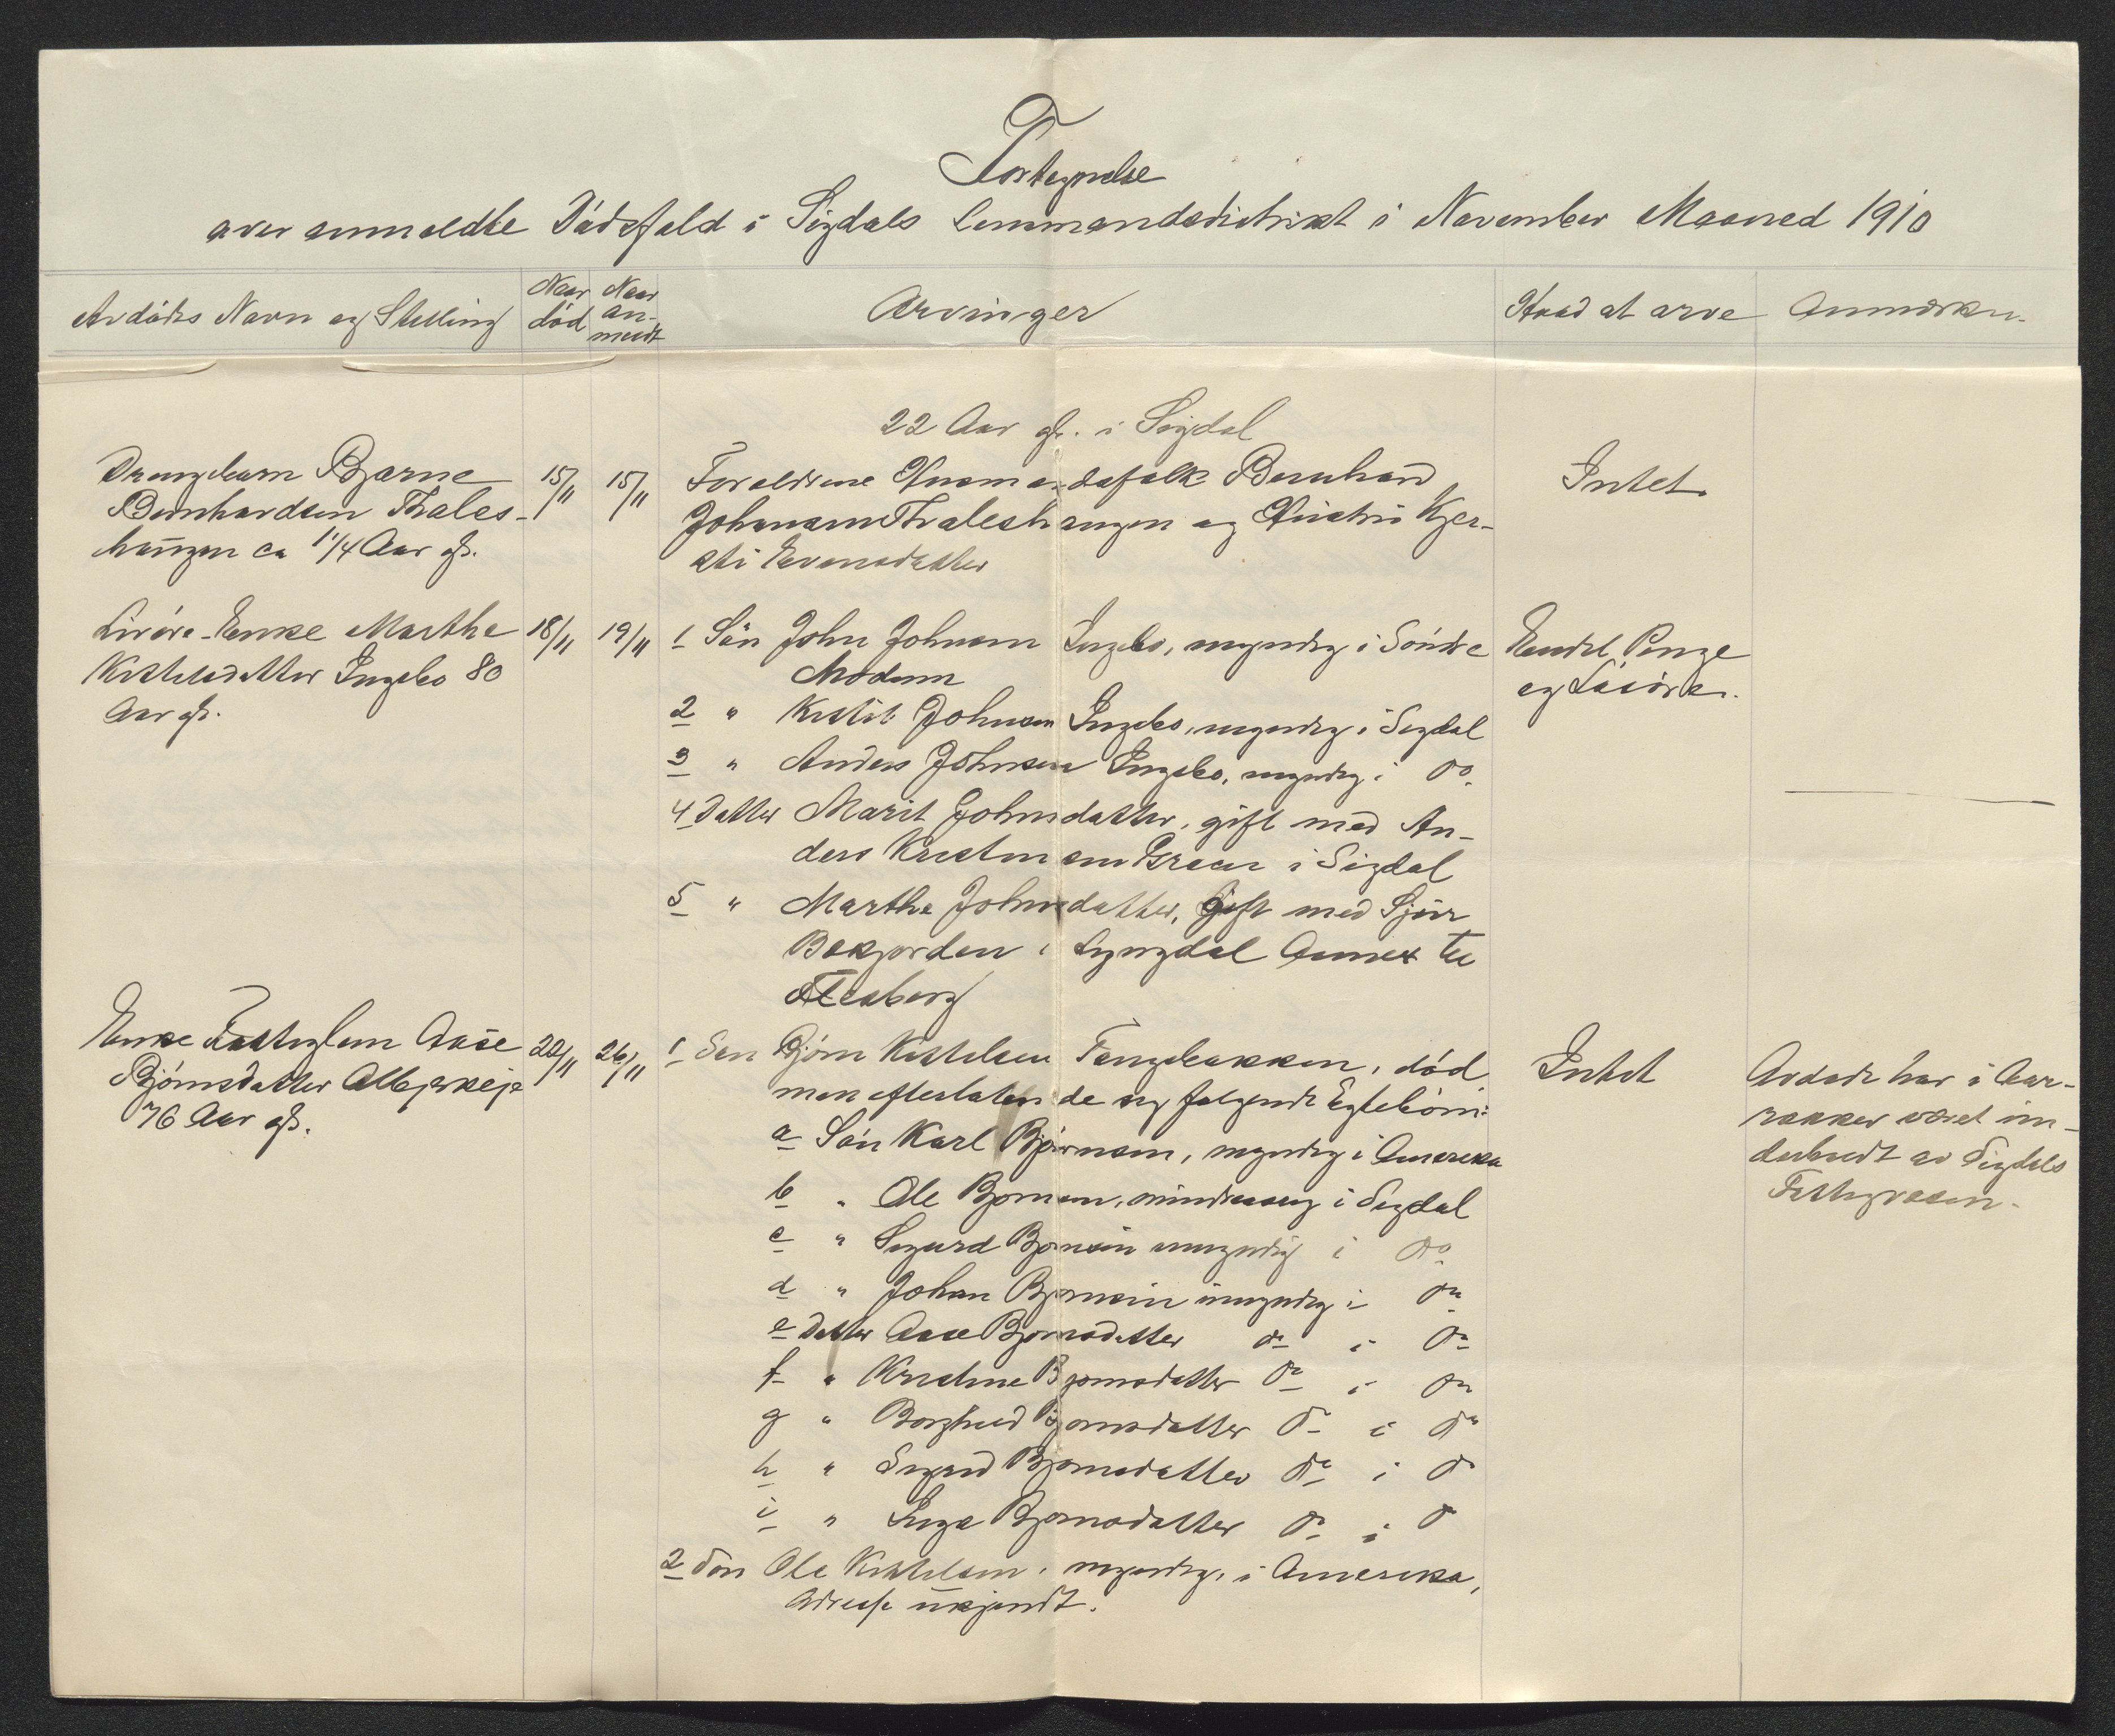 Fortegnelse
over anmeldte Dödsfald i Sigdals Lensmandsdistrikt i November Maaned 1910
Avdödes Navn og Stilling
Naar död
Naar an-
meldt
Arvinger
Hvad at arve
Anmærkn.
22 Aar gl. i Sigdal
Drengebarn Bjarne
Bernhardsen Thales-
haugen ca 1 1/4 Aar gl.
15/11
15/11
Forældrene Husmandsfolk Bernhard
Johnsen Thaleshaugen og Hustru Kjer-
sti Evensdatter
Intet.
Livöre-Enke Marthe
Kittelsdatter Engebo 80
Aar gl.
18/11
19/11
1 Sön John Johnsen Engebo, myndig i Söndre
Modum
2 " Kittil Johnsen Engebo, myndig i Sigdal
3 " Anders Johnsen Engebo, myndig i do.
4 Datter Marit Johnsdatter, gift med An-
ders Kristensen Braen i Sigdal
5 " Marthe Johnsdatter, Gift med
Bekjorden i Lyngdal Annex til
Flesberg
Endel Penge
og Lösöre.
Enke Fattiglem Aase
Björnsdatter
76 Aar gl.
22/11
26/11
1 Sön Björn Kittelsen Tangebakken, död
men efterlatende sig følgende Egtebörn:
a Sön Karl Björnsen, myndig i Amerika
b " Ole Bjornsen, mindreaarig i Sigdal
c " Sigurd Bjornsen umyndig i do
d " Johan Bjornsen umyndig i do
e Datter Aase Bjornsdatter do i do
f " Kristine Bjornsdatter do i do
g " Borghild Bjornsdatter do i do
h " Sigrid Bjornsdatter do i do
i " Inga Bjornsdatter do i do
2 Sön Ole Kittelsen, myndig, i Amerika,
Adresse ukjendt.
Intet
Avdøde har i Aar-
rækker været un-
derholdt av Sigdals
Fattigvæsen.